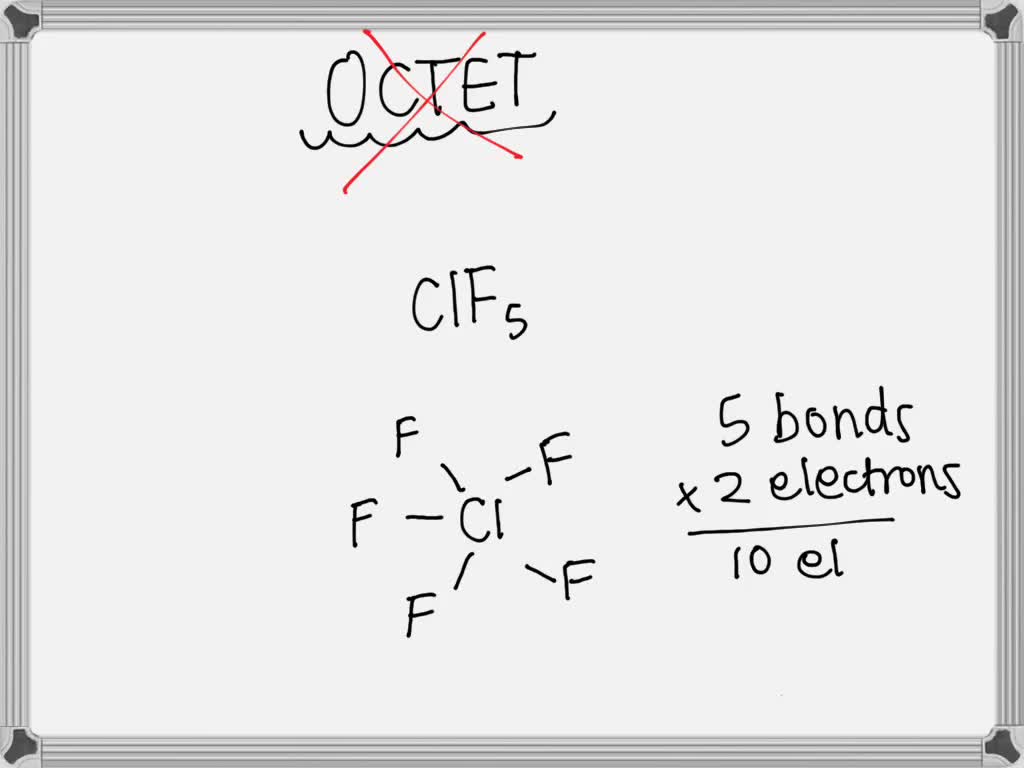 OCTET
ClF5
F
F
F — Cl
F
F
5 bonds
x 2 electrons
10 el